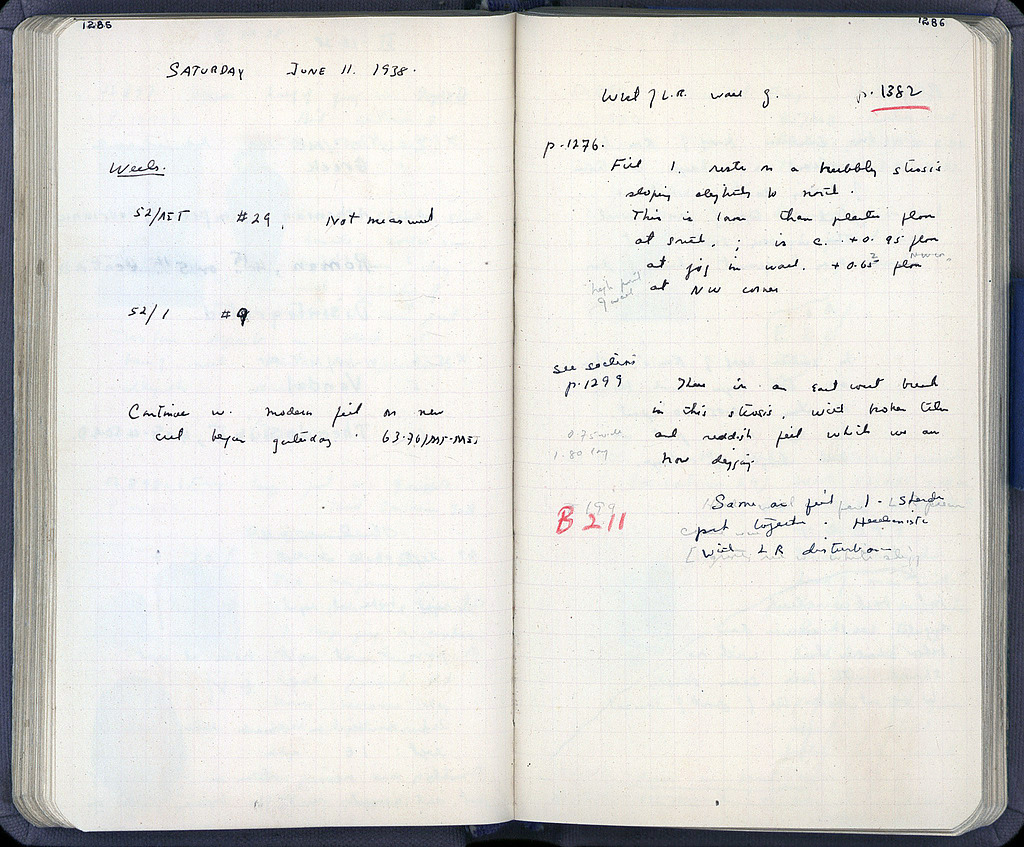 1285
SATURDAY JUNE 11. 1938.
Wells.
52/ΛΣΤ #29. Not measured
52/1 #9
Continue w. modern fill on new
cut begun yesterday. 63-70/
1286
West of L.R. wall of. p. 1382
p. 1276.
Fill 1. rests on a rubbly strosis
sloping slightly to north.
This is lower than plaster floor
at south. ; is c. +0.95 floor
at jog in wall. +0.65 floor
at NW corner
NW cor.
high point
of wall
see section
p. 1299
There is an east west break
in this strosis. with broken tiles
and reddish fill which we are
now digging.
0.75 wide
1.80 long
B 211
Same as fill 1. Sherds
put together. Hellenistic
with L R disturbance